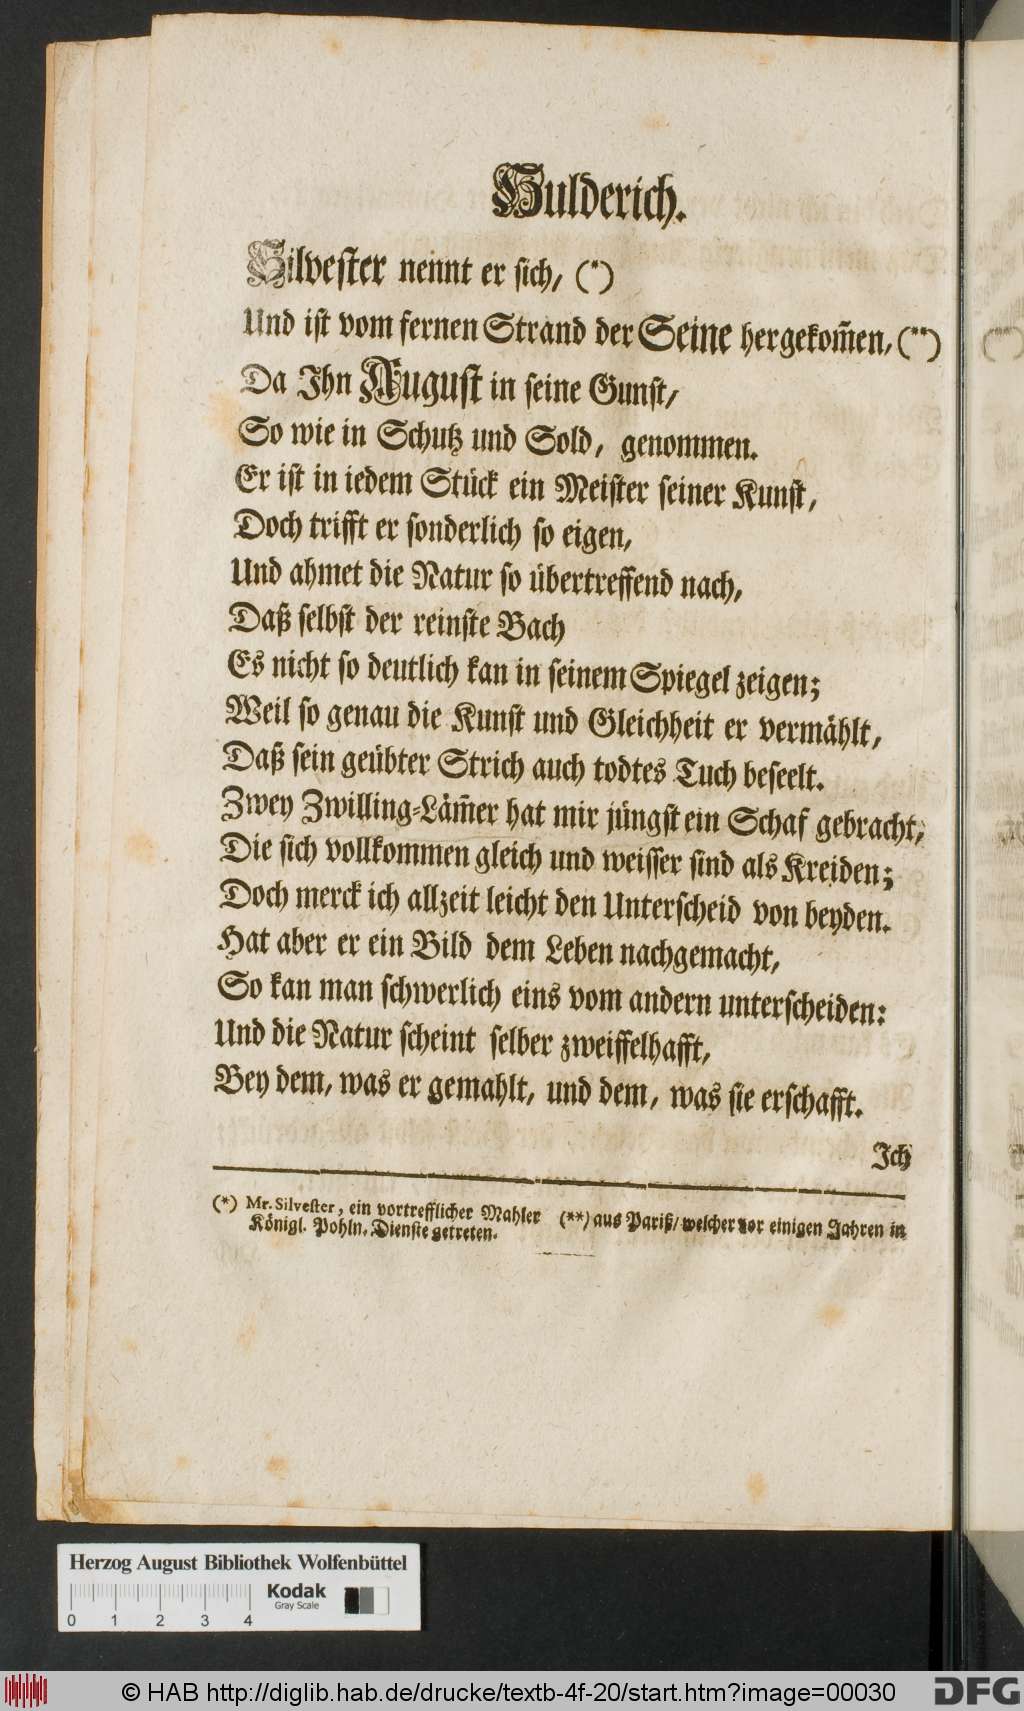 Hulderich.
Silvester nennt er sich, (*)
Und ist vom fernen Strand der Seine hergekom̃en, (**)
Da Ihn August in seine Gunst,
So wie in Schutz und Sold, genommen.
Er ist in iedem Stück ein Meister seiner Kunst,
Doch trifft er sonderlich so eigen,
Und ahmet die Natur so übertreffend nach,
Daß selbst der reinste Bach
Es nicht so deutlich kan in seinem Spiegel zeigen;
Weil so genau die Kunst und Gleichheit er vermählt,
Daß sein geübter Strich auch todtes Tuch beseelt.
Zwey Zwilling-Läm̃er hat mir jüngst ein Schaf gebracht,
Die sich vollkommen gleich und weisser sind als Kreiden;
Doch merck ich allzeit leicht den Unterscheid von beyden.
Hat aber er ein Bild dem Leben nachgemacht,
So kan man schwerlich eins vom andern unterscheiden:
Und die Natur scheint selber zweiffelhafft,
Bey dem, was er gemahlt, und dem, was sie erschafft.
Ich
(*) Mr. Silvester, ein vortrefflicher Mahler (**) aus Pariß/ welcher vor einigen Jahren in
Königl. Pohln. Dienste getreten.
Herzog August Bibliothek Wolfenbüttel
Kodak
Gray Scale
0 1 2 3 4
© HAB http://diglib.hab.de/drucke/textb-4f-20/start.htm?image=00030
DFG